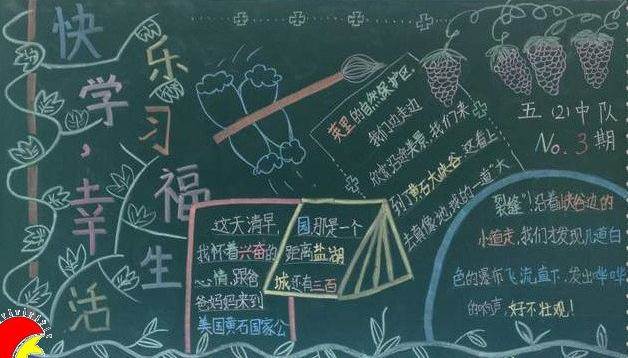 快乐学习，幸福生活
五(2)中队
No.3期
这天清早，
我怀着兴奋的
心情，跟爸
爸妈妈来到
美国黄石国家公
园，那是一个
距离盐湖
城还有三百
英里的自然保护区。
我们边走边
欣赏沿途美景，我们来
到了黄石大峡谷，这看上
去真像“地球的一道大
裂缝”！沿着峡谷边的
小道走，我们才发现几道白
色的瀑布飞流直下，发出哗哗
的响声，好不壮观！